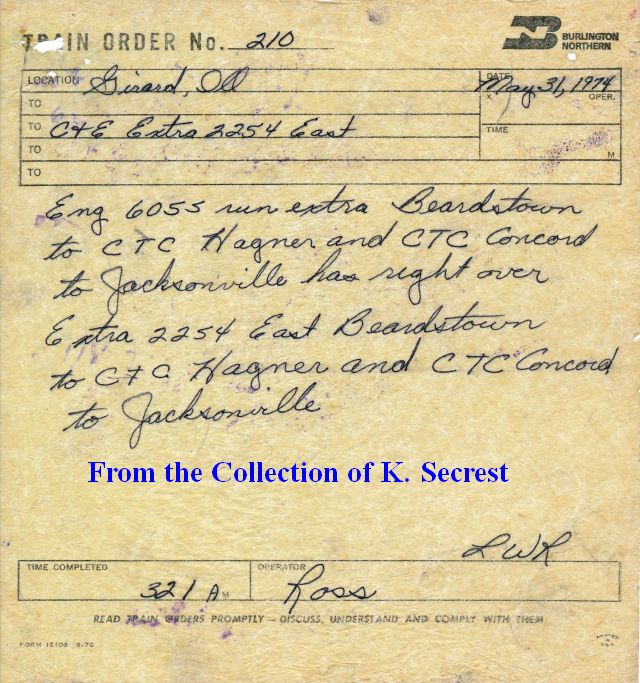 TRAIN ORDER No. 210
BURLINGTON NORTHERN
LOCATION Girard, Ill
DATE May 31, 1974
X OPER.
TO
TO C&E Extra 2254 East
TIME M
TO
TO
Eng 6055 run extra Beardstown
to CTC Hagner and CTC Concord
to Jacksonville has right over
Extra 2254 East Beardstown
to CTC Hagner and CTC Concord
to Jacksonville
From the Collection of K. Secrest
LWR
TIME COMPLETED 321 A M
OPERATOR Ross
READ TRAIN ORDERS PROMPTLY — DISCUSS, UNDERSTAND AND COMPLY WITH THEM
FORM 15108 6-70
PRINTED IN U.S.A.